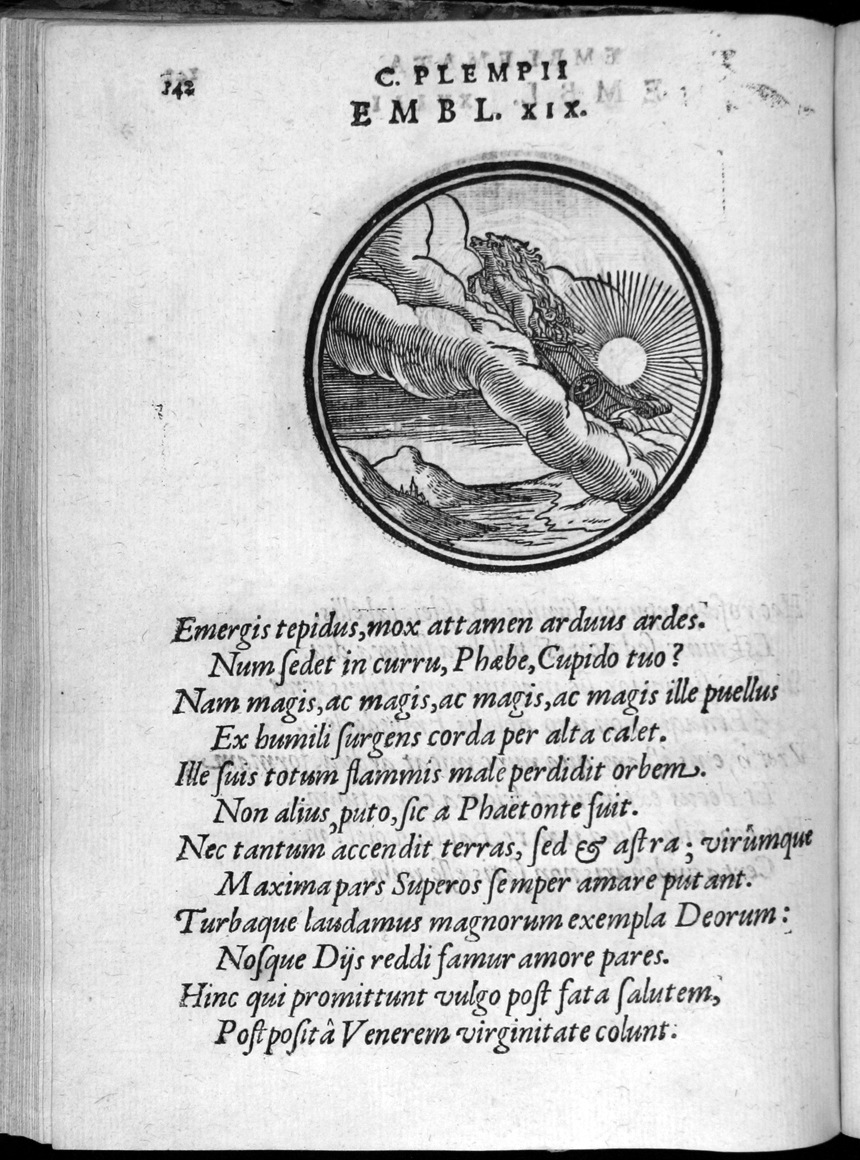 142
C. PLEMPII
EMBL. XIX.
Emergis tepidus, mox attamen arduus ardes.
Num ſedet in curru, Phæbe, Cupido tuo?
Nam magis, ac magis, ac magis, ac magis ille puellus
Ex humili ſurgens corda per alta calet.
Ille ſuis totum flammis malè perdidit orbem.
Non alius, puto, ſic a Phaëtonte fuit.
Nec tantum accendit terras, ſed & aſtra; virûmque
Maxima pars Superos ſemper amare putant.
Turbaque laudamus magnorum exempla Deorum:
Noſque Dijs reddi famur amore pares.
Hinc qui promittunt vulgo poſt fata ſalutem,
Poſtpoſitâ Venerem virginitate colunt.